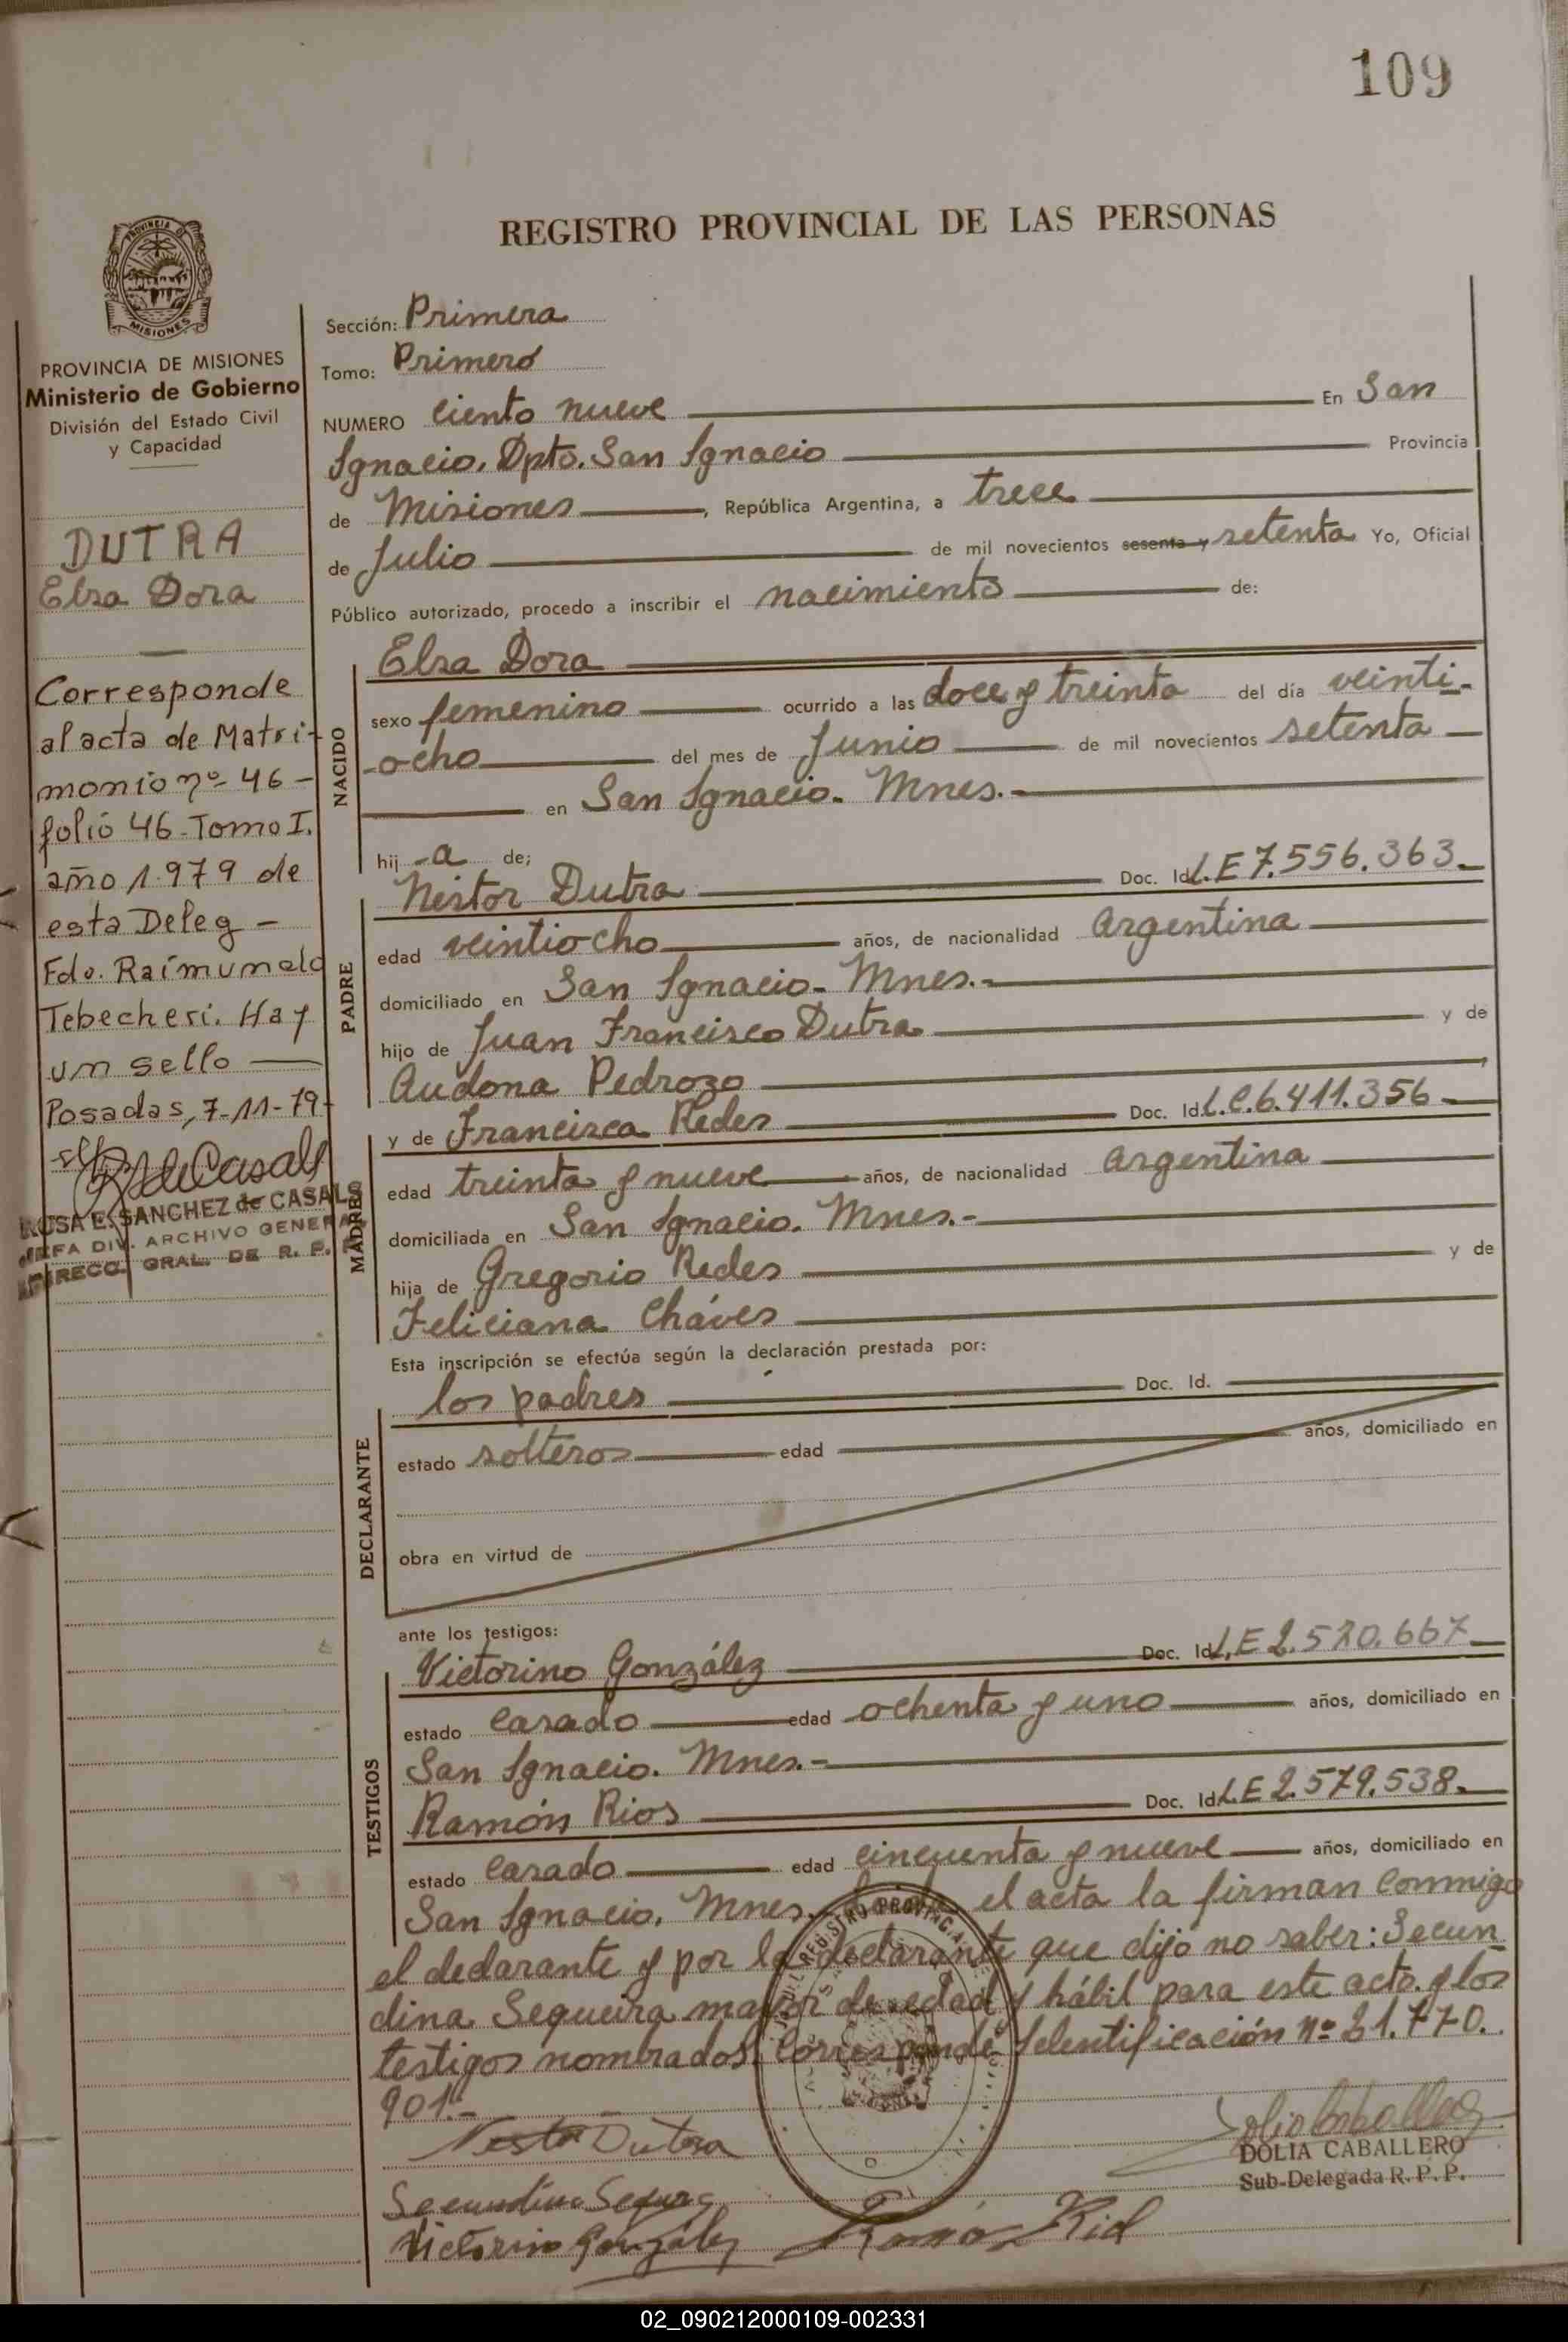 109
REGISTRO PROVINCIAL DE LAS PERSONAS
PROVINCIA DE MISIONES
Ministerio de Gobierno
División del Estado Civil
y Capacidad
DUTRA
Elsa Dora
Corresponde
al acta de Matri-
monio nº 46 -
folio 46 - Tomo I.
año 1.979 de
esta Deleg -
Fdo. Raimundo
Tebecheri. Hay
un sello
Posadas, 7-11-79-
ROSA E. SANCHEZ de CASALS
JEFA DIV. ARCHIVO GENERAL
DIRECC. GRAL. DE R. P. P.
Sección: Primera
Tomo: Primero
NUMERO ciento nueve En San
Ignacio. Dpto. San Ignacio Provincia
de Misiones, República Argentina, a trece
de Julio de mil novecientos sesenta y setenta Yo, Oficial
Público autorizado, procedo a inscribir el nacimiento de:
NACIDO
Elsa Dora
sexo femenino ocurrido a las doce y treinta del día veinti-
-ocho del mes de Junio de mil novecientos setenta
en San Ignacio. Mnes.-
hij -a de;
PADRE
Nestor Dutra Doc. Id. L.E 7.556.363.-
edad veintiocho años, de nacionalidad Argentina
domiciliado en San Ignacio. Mnes.-
hijo de Juan Francisco Dutra y de
Audona Pedrozo
MADRE
y de Francisca Redes Doc. Id. L.C.6.411.356.-
edad treinta y nueve años, de nacionalidad Argentina
domiciliada en San Ignacio. Mnes.-
hija de Gregorio Redes y de
Feliciana Cháves
Esta inscripción se efectúa según la declaración prestada por:
DECLARANTE
los padres Doc. Id.
estado solteros edad años, domiciliado en
obra en virtud de
ante los testigos:
TESTIGOS
Victorino González Doc. Id. L.E 2.580.667
estado casado edad ochenta y uno años, domiciliado en
San Ignacio. Mnes.-
Ramón Rios Doc. Id. L.E 2.579.538.-
estado casado edad cincuenta y nueve años, domiciliado en
San Ignacio. Mnes. el acta la firman conmigo
el declarante y por la declarante que dijo no saber: Secun
dina Sequeira mayor de edad y hábil para este acto. y los
testigos nombrados. Corresponde Identificación nº 21.770.
901.-
Nestor Dutra
Victorino González
Ramón
DOLIA CABALLERO
Sub-Delegada R. P. P.
02_090212000109-002331